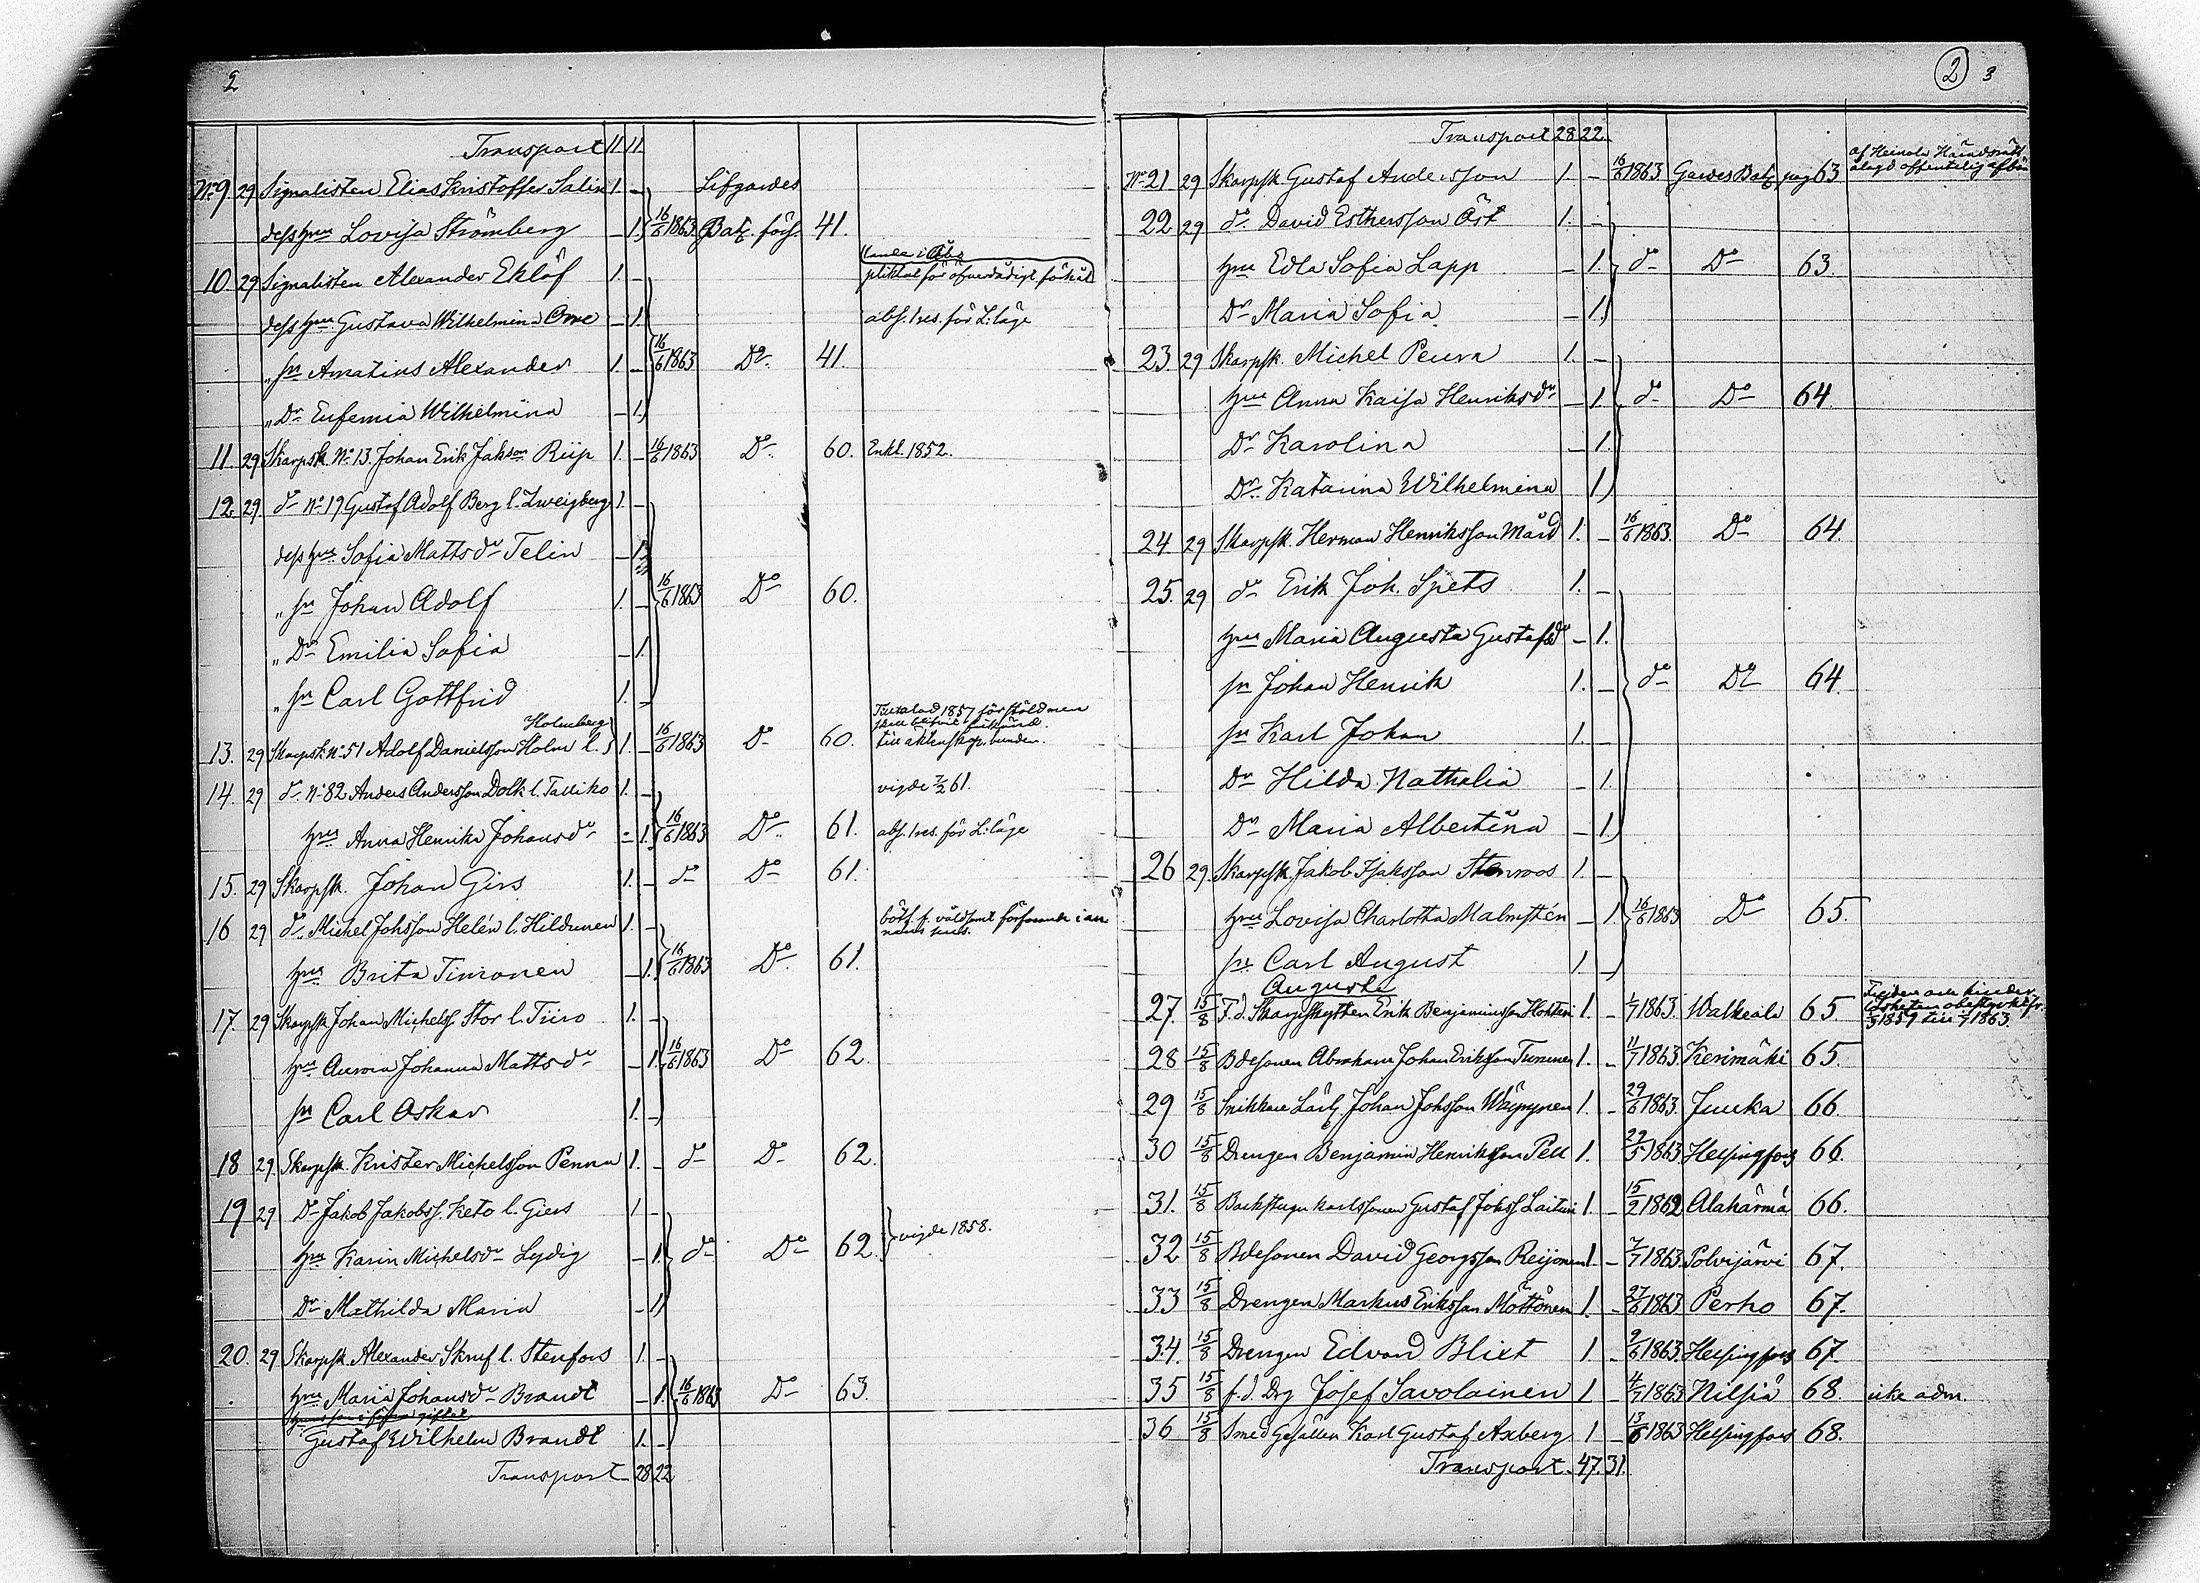 2
Transport 11 11
No 9 29 Signalisten Elias Kristoffer Salin 1. – Lifgardes
dess hru Lovisa Strömberg – 1. 16/6 1863 Batj. förs. 41.
10 29 Signalisten Alexander Eklöf 1. – pliktat för öfverdådigt förhåll
dess hru Gustava Wilhelmina – 1. abs. 1 res. för L: läge
„ sn Amatius Alexander 1. – 16/6 1863 Do 41.
„ Dr Eufemia Wilhelmina – 1.
11. 29 Skarpsk. No 13. Johan Erik Jakson Riip 1. – 16/6 1863 Do 60. Enkl. 1852.
12. 29. do No 19 Gustaf Adolf Berg l. Zweigberg 1. –
dess hru Sofia Mattsdr Telin – 1.
„ sn Johan Adolf 1. – 16/6 1863 Do 60.
„ Dr Emilia Sofia – 1.
„ sn Carl Gottfrid 1. –
Holmberg
13. 29 Skarpsk No 51 Adolf Danielsson Holm l. 1. – 16/6 1863 Do 60. till äktenskap. bunden.
14. 29 do No 82 Anders Andersson Dolk l. Talliko 1. – vigde 7/2 61.
hru Anna Henrika Johansdr – 1. 16/6 1863 Do 61. abs. 1 res. för L: läge
15. 29 Skarpsk. Johan Girs 1. – do Do 61.
16 29 do Michel Johsson Helén l. Hildunen 1. – böt. f. våldsamt
hru Brita Timonen – 1. 16/6 1863 Do 61.
17 29 Skarpsk Johan Michelss. Stor l. Tiiro 1. –
hru Aurora Johanna Mattsdr – 1. 16/6 1863 Do 62.
sn Carl Oskar 1. –
18 29. Skarpsk. Krister Michelsson Penna 1. – do Do 62.
19 29 Do Jakob Jakobss. Keto l. Giers 1 –
hru Karin Michelsdr Lydig – 1. do Do 62. vigde 1858.
Dr Mathilda Maria – 1.
20. 29 Skarpsk. Alexander Skruf l. Stenfors 1. –
hru Maria Johansdr Brandt – 1. 16/6 1863 Do 63.
Gustaf Wilhelm Brandt 1. –
Transport 28 22
2 3
Transport 28 22.
No 21 29 Skarpsk Gustaf Andersson 1. – 16/6 1863 Gardes Batj pag 63 af Heinola Häradsrätt
22 29 do David Esthersson Öst 1. –
hru Edla Sofia Lapp – 1. do Do 63
Dr Maria Sofia – 1.
23 29 Skarpsk. Michel Peura 1. –
hru Anna Kaisa Henriksdr – 1. do Do 64.
Dr Karolina – 1.
Dr Katarina Wilhelmina 1.
24 29 Skarpsk. Herman Henriksson Mård 1. – 16/6 1863. Do 64.
25. 29 do Erik Joh. Spets 1. –
hru Maria Augusta Gustafsdr – 1.
sn Johan Henrik 1. – do Do 64.
sn Karl Johan 1. –
Dr Hilda Nathalia – 1.
Dr Maria Albertina – 1.
26 29. Skarpsk. Jakob Isaksson Stenroos 1. –
hru Lovisa Charlotta Malmstén – 1. 16/6 1863 Do 65.
sn Carl August 1. –
Augusti
27. 15/8 F. d. Skarpskytten Erik Benjaminsson 1. – 1/7 1863. Walkeala 65. 1857 till 1863.
28 15/8 Bdesonen Abraham Johan Eriksson Tununen 1. – 11/7 1863. Kerimäki 65.
29 15/8 Snikkare Lärl. Johan Johsson Wäyrynen 1. – 29/6 1863. Juuka 66.
30 15/8 Drengen Benjamin Henriksson Pell 1. 29/5 1863 Helsingfors 66.
31. 15/8 Backstugu karlssonen Gustaf Johss Laituri 1 – 15/9 1862 Alahärmä 66.
32 15/8 Bdesonen David Georgsson Reijonen 1. – 7/7 1863. Polvijärvi 67.
33 15/8 Drengen Markus Eriksson Möttönen 1. – 27/6 1863 Perho 67.
34. 15/8 Drengen Edvard Blixt 1 – 9/6 1863. Helsingfors 67.
35 15/8 f. d. Drg Josef Savolainen 1 – 4/7 1863 Nilsiä 68. icke adm.
36 15/8 Smed Gesällen Karl Gustaf Axberg 1 – 13/6 1863 Helsingfors 68.
Transport 47. 31.